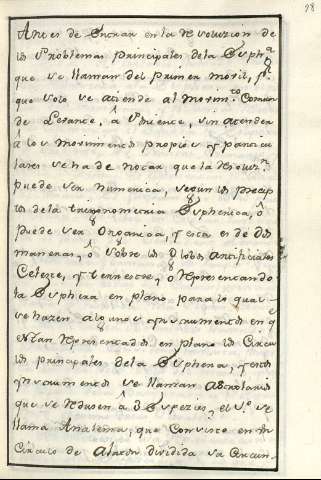 98
Antes de Entrar en la Resoluzion de
los Problemas principales dela Esph.ª
que se llaman del primer mobil, p.r
que solo se atiende al movim.to Comun
de Levante, â Poniente, sin atender
â los movimientos propios y particu
lares se ha de notar que la Resoluz.n
puede ser numerica, segun los precep
tos dela trigonometria Espherica, ô
puede ser Organica, y esta es de dos
maneras, ô sobre los Globos artificiales
Celeste, y terrestre, ô Representando
la Esphera en plano, para lo qual
se hazen algunos ynstrumentos en q
estan Representados en plano los Circu
los principales dela Esphera, y estos
ynstrumentos se llaman Astrolavios
que se Reducen â 3 Espezies, el 1.º se
llama Analema, que Consiste en un
Circulo de alaton dividida su Circun-